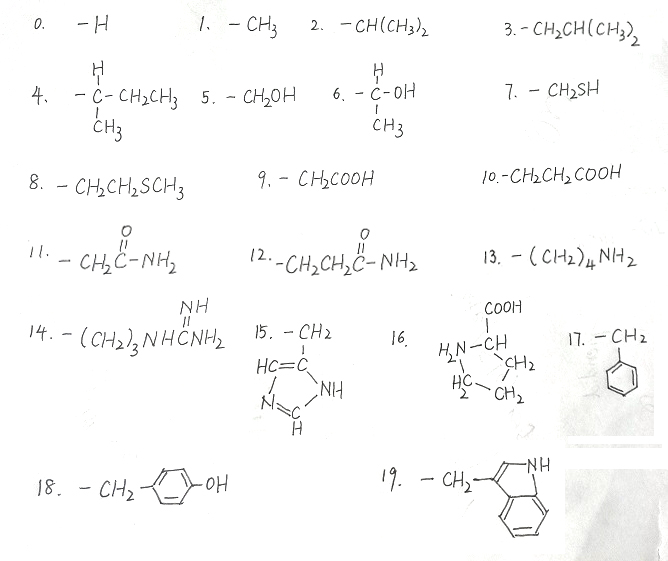 0. -H 1. -CH3 2. -CH(CH3)2 3. -CH2CH(CH3)2
H
4. -C-CH2CH3 5. -CH2OH
CH3
H
6. -C-OH
CH3
7. -CH2SH
8. -CH2CH2SCH3 9. -CH2COOH 10. -CH2CH2COOH
O
11. -CH2C-NH2
O
12. -CH2CH2C-NH2
13. -(CH2)4NH2
NH
14. -(CH2)3NHCNH2
15. -CH2
HC=C
NH
N=C
H
16.
COOH
H2N-CH
CH2
H2C
CH2
17. -CH2
18. -CH2 -OH
19. -CH2 NH